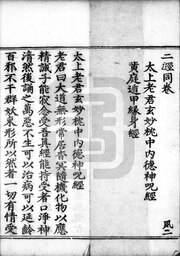 二經同卷
太上老君玄妙枕中內德神呪經
黃庭遁甲緣身經
夙二
太上老君玄妙枕中內德神呪經
老君曰大道無形常居杳冥隨機化物以應
精誠子能寂念受吾真經能持受者口淨神
清然後誦之萬惡不生可以治病可以延齡
百邪不干群妖氣形所以然者一切有情受